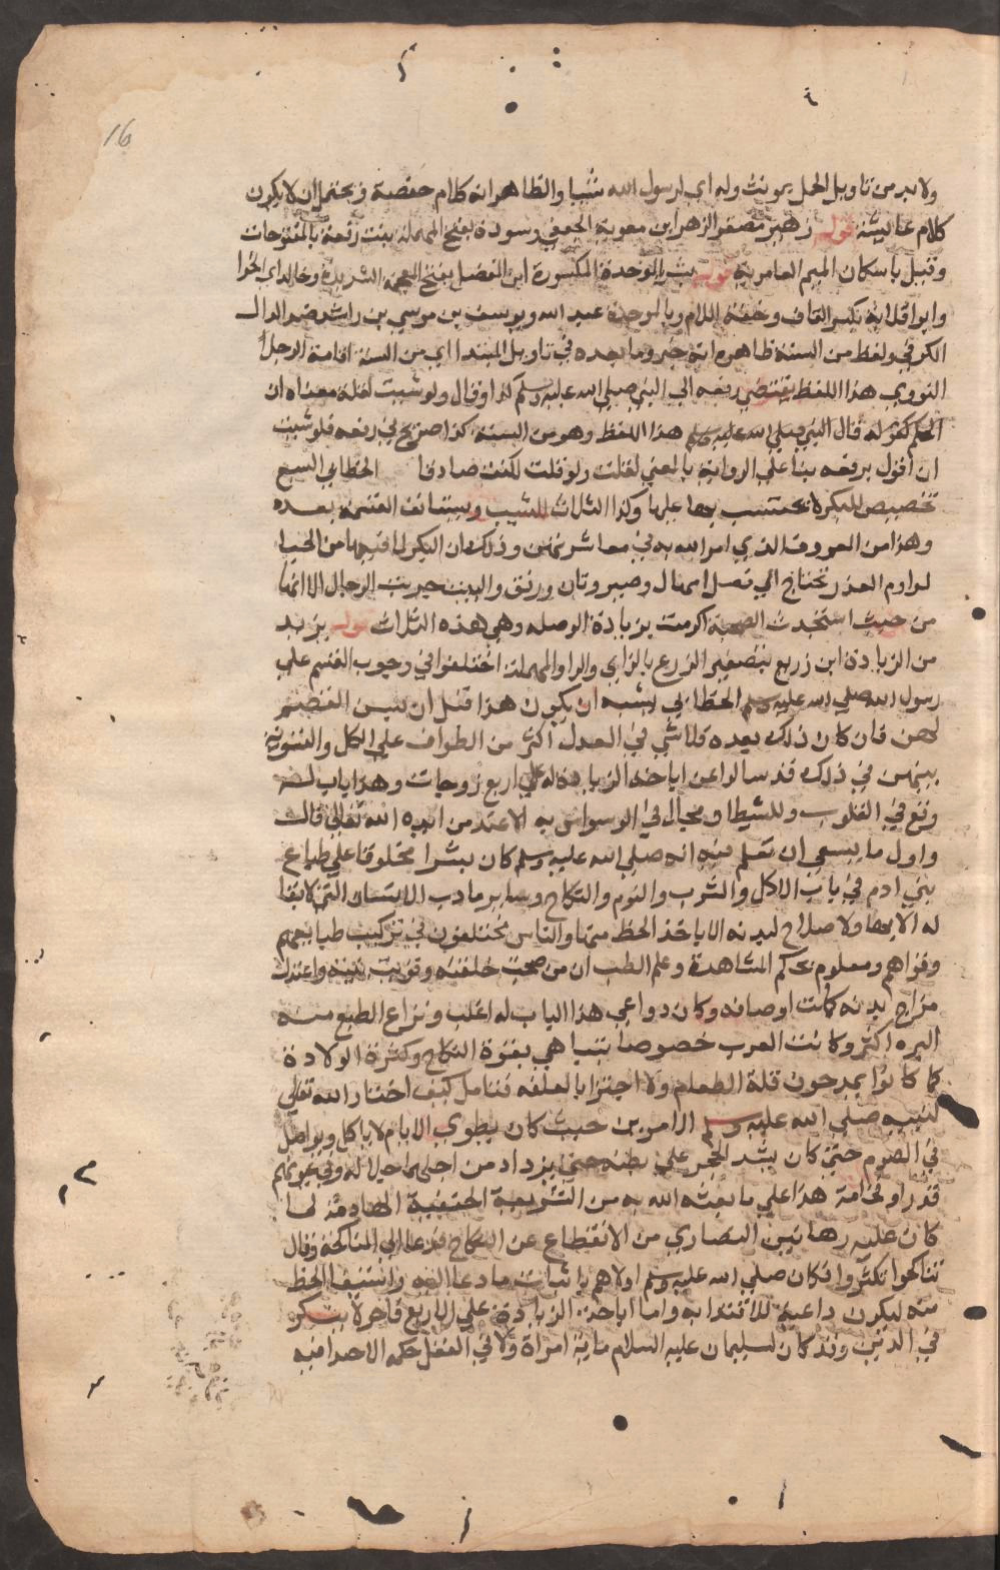 16
ولابد من تاويل الحل بمونث وله اي لرسول الله شيا والظاهر انه كلام حفصة ويحتمل ان لا يكون
كلام عايشة قوله زهير مصغر الزهر ابن معوية الجعفي وسودة بفتح المهملة بنت زمعة بالمفتوحات
وقيل باسكان الميم العامرية قوله بشر بالموحدة المكسورة ابن المفضل بفتح المعجمة الشديدة وخالد اي الحذا
وابو قلابة بكسر القاف وخفة اللام وبالموحدة عبد الله ويوسف بن موسي بن راشد ضد الدال
الكوفي ولفظ من السنة ظاهر انه خبر وما بعده في تاويل المبتدا اي من السنة اقامة الرجل
النووي هذا اللفظ يقتضي رفعه الي النبي صلي الله عليه وسلم كذا وقال ولو شيت لقلت معناه ان
الحكم كقوله قال النبي صلي الله عليه وسلم هذا اللفظ وهو من السنة كذا صريح في رفعه فلو شيت
ان اقول برفعه بنا علي الرواية بالمعني لقلت ولو قلت لكنت صادقا الخطابي السبع
تخصيص للبكر لا يحتسب بها عليها وكذا الثلاث للثيب ويستانف القسمة بعده
وهذا من المعروف الذي امر الله به في معاشرتهن وذلك ان البكر لما فيها من الحيا
ولوازم الخدر تحتاج الي فضل امهال وصبر وتان ورفق والثيب جربت الرجال الا انها
من حيث استجدت الصحبة اكرمت بزيادة الوصله وهي هذه الثلاث قوله يزيد
من الزيادة ابن زريع بتصغير الزرع بالزاي والرا والمهملة اختلفوا في وجوب القسم علي
رسول الله صلي الله عليه وسلم الخطابي يشبه ان يكون هذا قبل ان يسن القسم
لهن فان كان ذلك بعده فلا شي في العدل اكثر من الطواف علي الكل والتسوية
بينهن في ذلك قد سالوا عن اباحة الزيادة له علي اربع زوجات وهذا باب له
وقع في القلوب وللشيطان مجال في الوسواس به الا عند من ايده الله تعالي قالت
واول ما ينبغي ان تعلم منه انه صلي الله عليه وسلم كان بشرا مخلوقا علي طباع
بني ادم في باب الاكل والشرب والنوم والنكاح وساير مارب الانسان التي لا بقا
له الا بها ولا صلاح لبدنه الا باخذ الحظ منها والناس مختلفون في تركيب طبايعهم
وقواهم ومعلوم بحكم المشاهدة وعلم الطب ان من صحت خلقته وقويت بنيته واعتدل
مزاج بدنه كملت اوصافه وكان دواعي هذا الباب له اغلب ونزاع الطبع منه
اليه اكثر وكانت العرب خصوصا تتباهي بقوة النكاح وكثرة الولادة
كما كانوا يمدحون قلة الطعام والاجتزا بالعلقه فتامل كيف اختار الله تعالي
لنبيه صلي الله عليه وسلم الامرين حيث كان يطوي الايام لا ياكل ويواصل
في الصوم حتي كان يشد الحجر علي بطنه حتي يزداد من اجلها جلالة في عيونهم
قدرا وفخامة هذا علي ما بعثه الله به من الشريعة الحنيفية الهادمة لما
كان عليه رهابين النصاري من الانقطاع عن النكاح فدعا الي المناكحة وقال
تناكحوا تكثروا فكان صلي الله عليه وسلم اولاهم باثبات ما دعا اليه واستيفا الحظ
منه ليكون داعية للاقتدا به واما اباحة الزيادة علي الاربع فامر لا ينكر
في الدين وقد كان لسليمان عليه السلام ماية امراة ولا في العقل حكم الا حد افيه